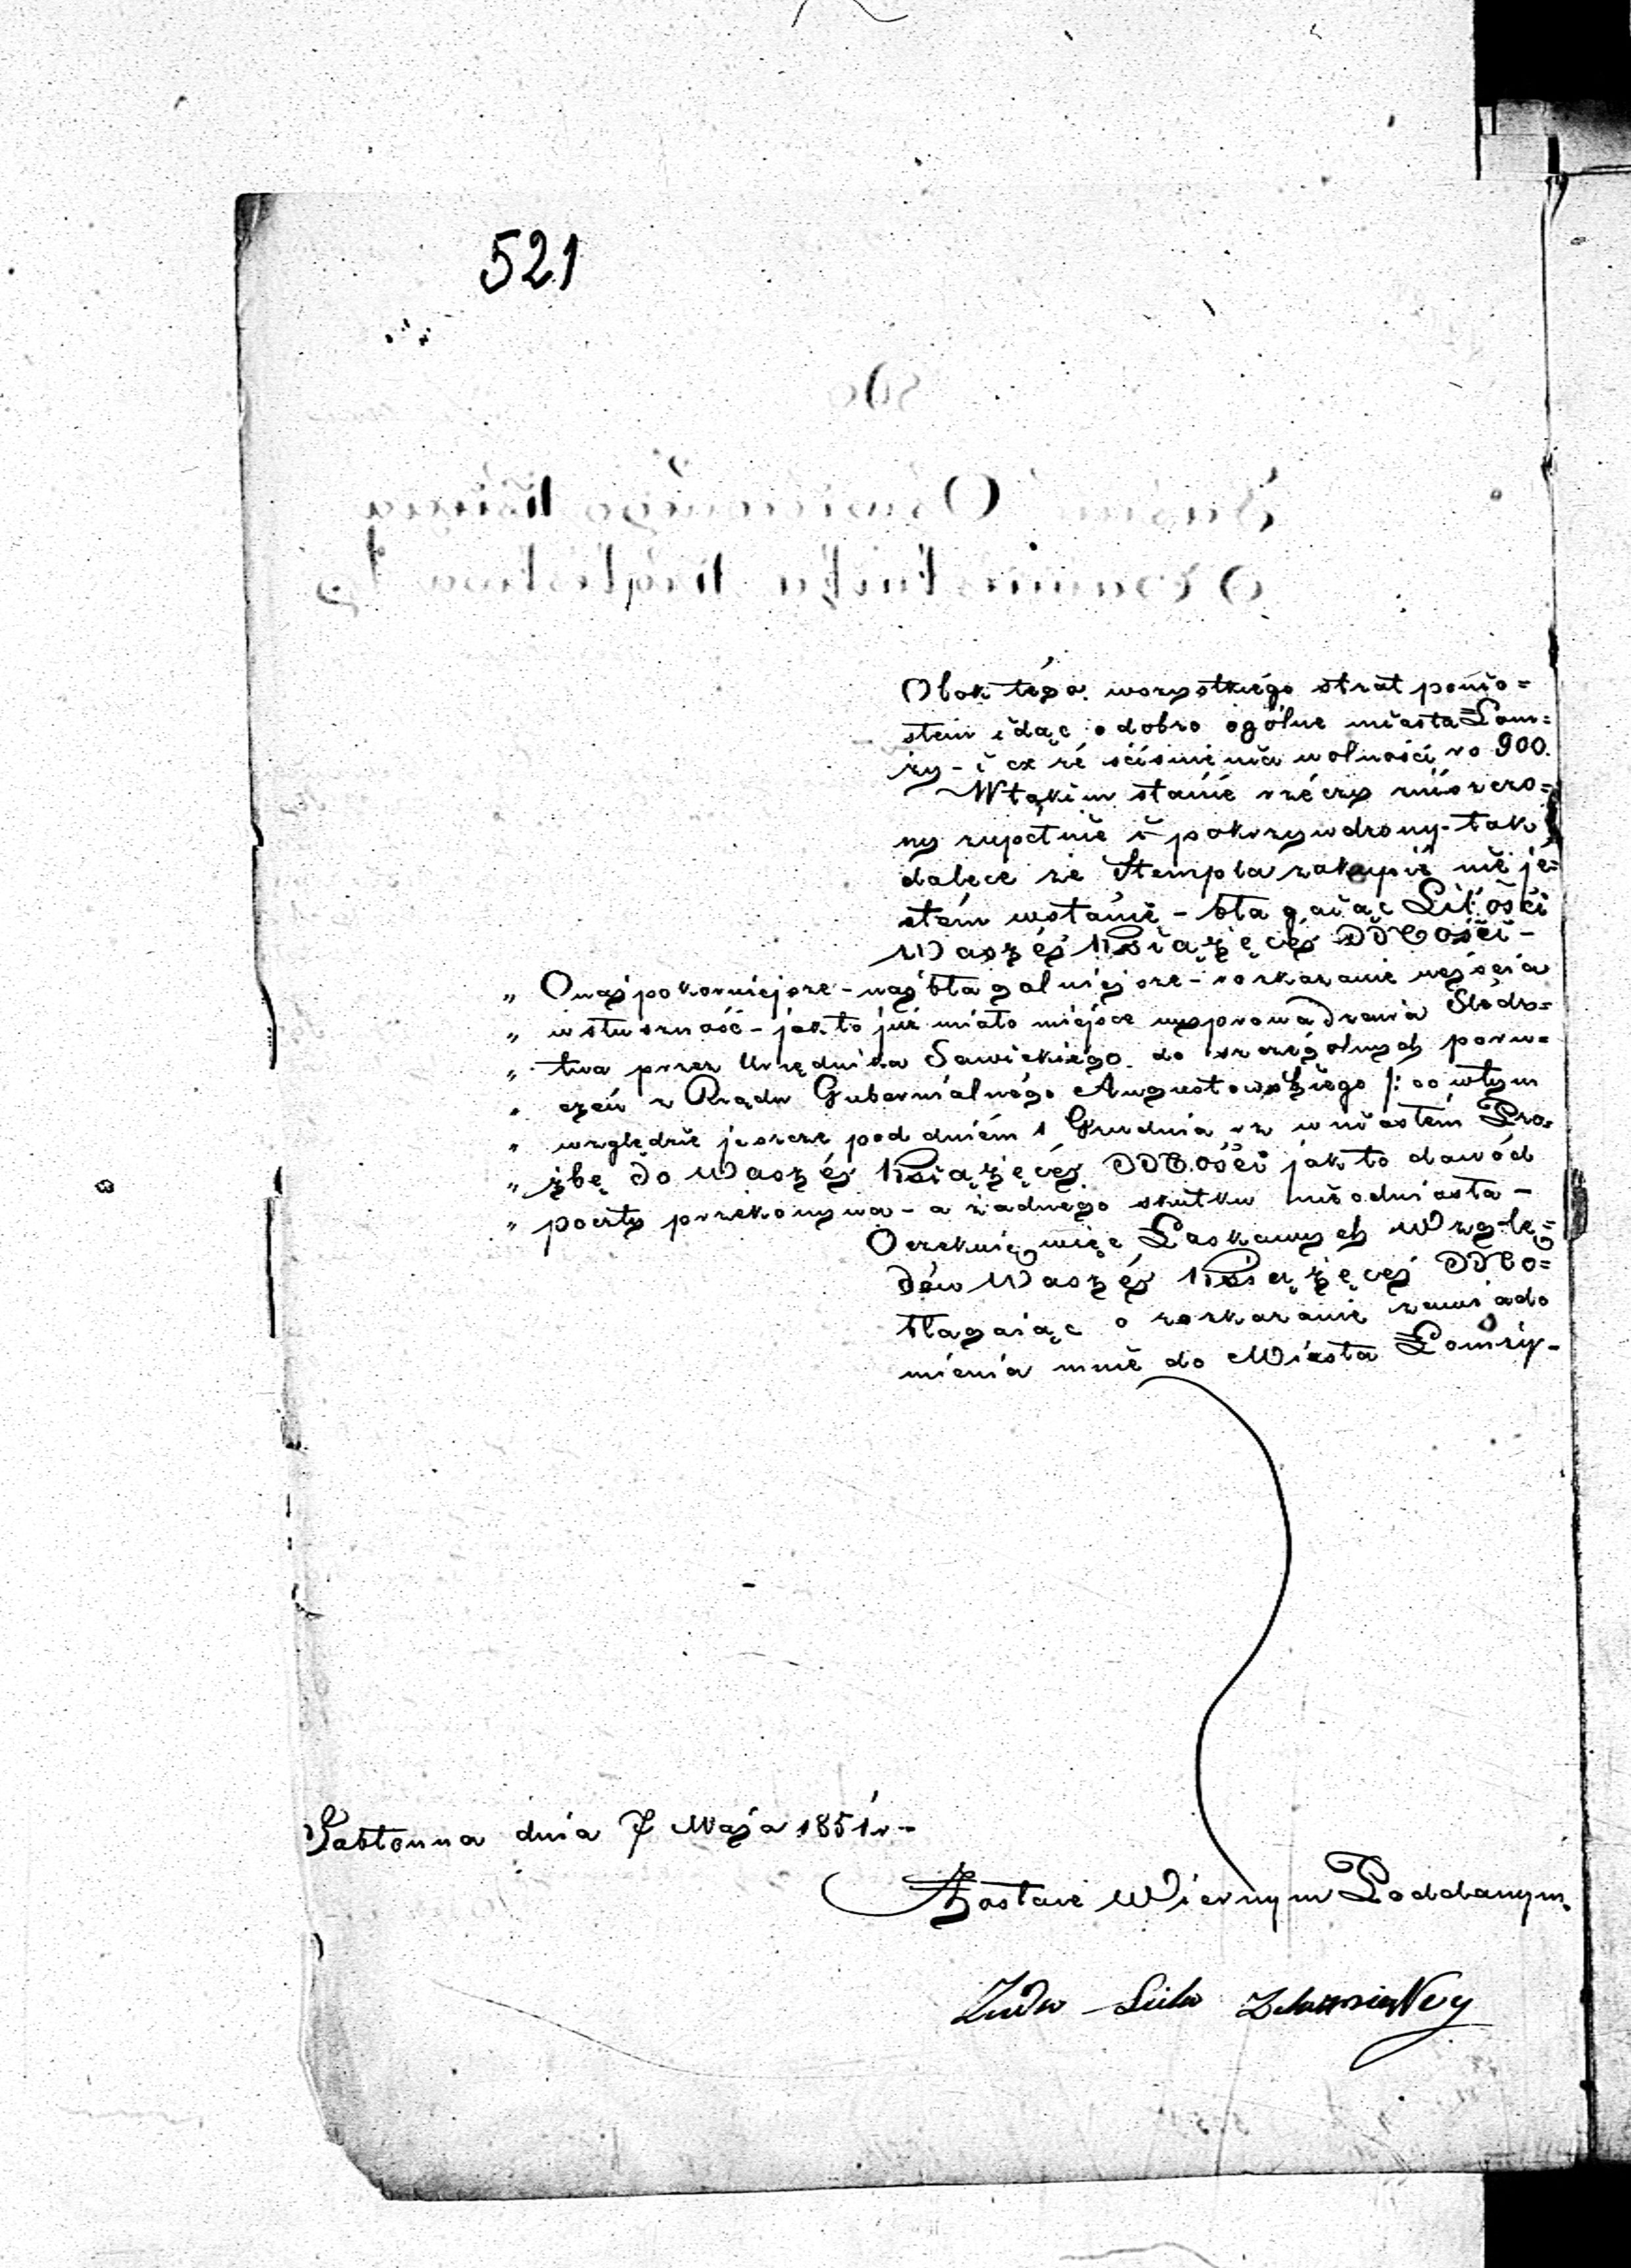 521
Obok tego wszystkiego strat ponio=
stem idąc o dobro ogólne miasta Łom=
ży - i cx ré sciśnienia wolności rs 900.
W takim stanie rzéczy zniszczo=
ny zupełnie i pokrzywdzony - tak
daléce że Stempla zakupić nie je=
stém wstanie - błagaiąc Litości
Waszéj Książęcéj Mości -
„ O najpokorniejsze - najbłagalniejsze - roskazanie wejscia
„ w stuszność - jak to już miało miejsce wyprowadzenia Sledz=
„ twa przez Urzędnika Sawickiégo do szczegolnych poru=
„ czeń z Rządu Gubernialnégo Augustowskiego /: co wtym
„ względzie jeszcze pod dniém 1 Grudnia rz wniostém Pro=
„ żbę do Waszéj Książęcéj Mości jak to dowód
„ poczty przekonywa - a żadnego skutku nieodniosta -
Oczekuię więc Łaskawych Wzglę=
dów Waszéj Książęcej Mo=
błagaiąc o rozkazanie zawiado
mienia mnie do Miasta Łomży -
Jabłonna dnia 7 Maja 1851 r -
Zostaie Wiernym Poddanym.